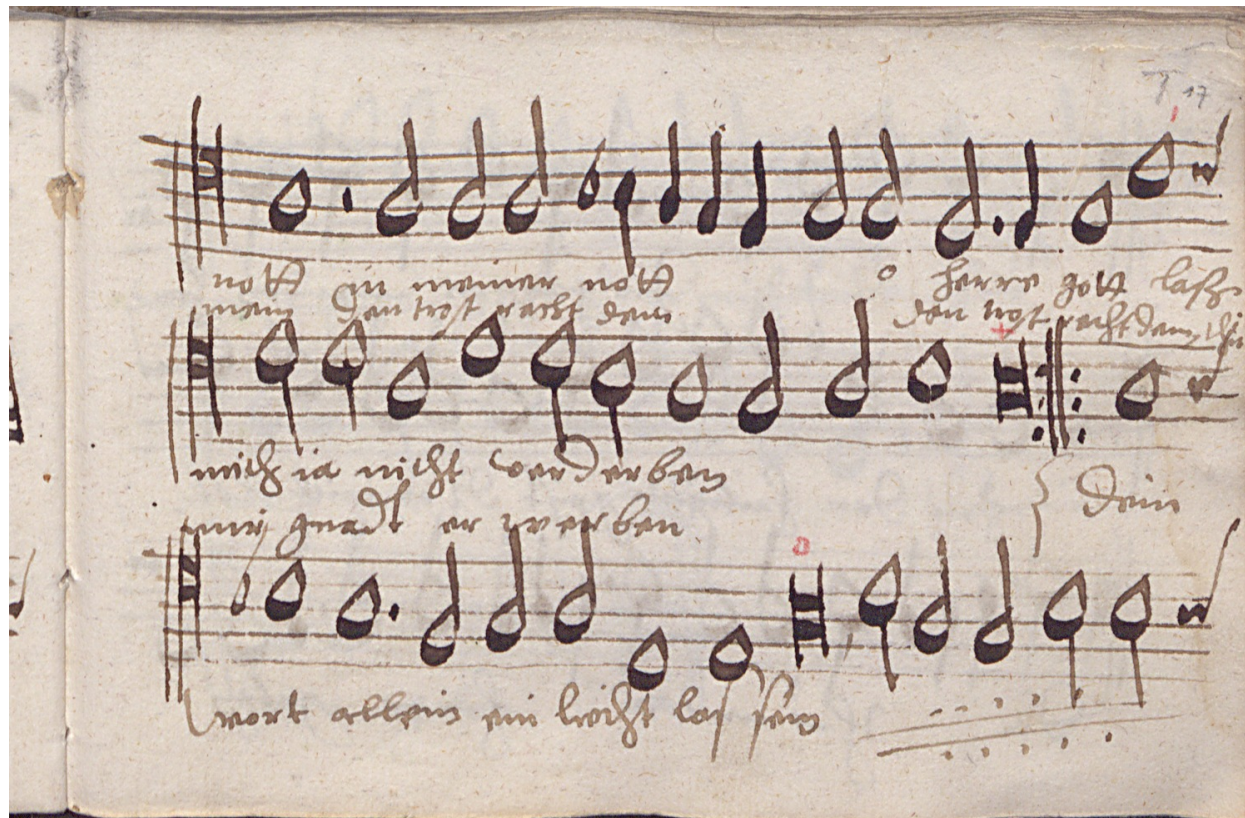 17
nott in meiner nott o herre gott lasz
mein den trost recht dein den trost recht dein
mich ia nicht verderben
mir gnadt er werben dein
wort allein ein liecht las sein